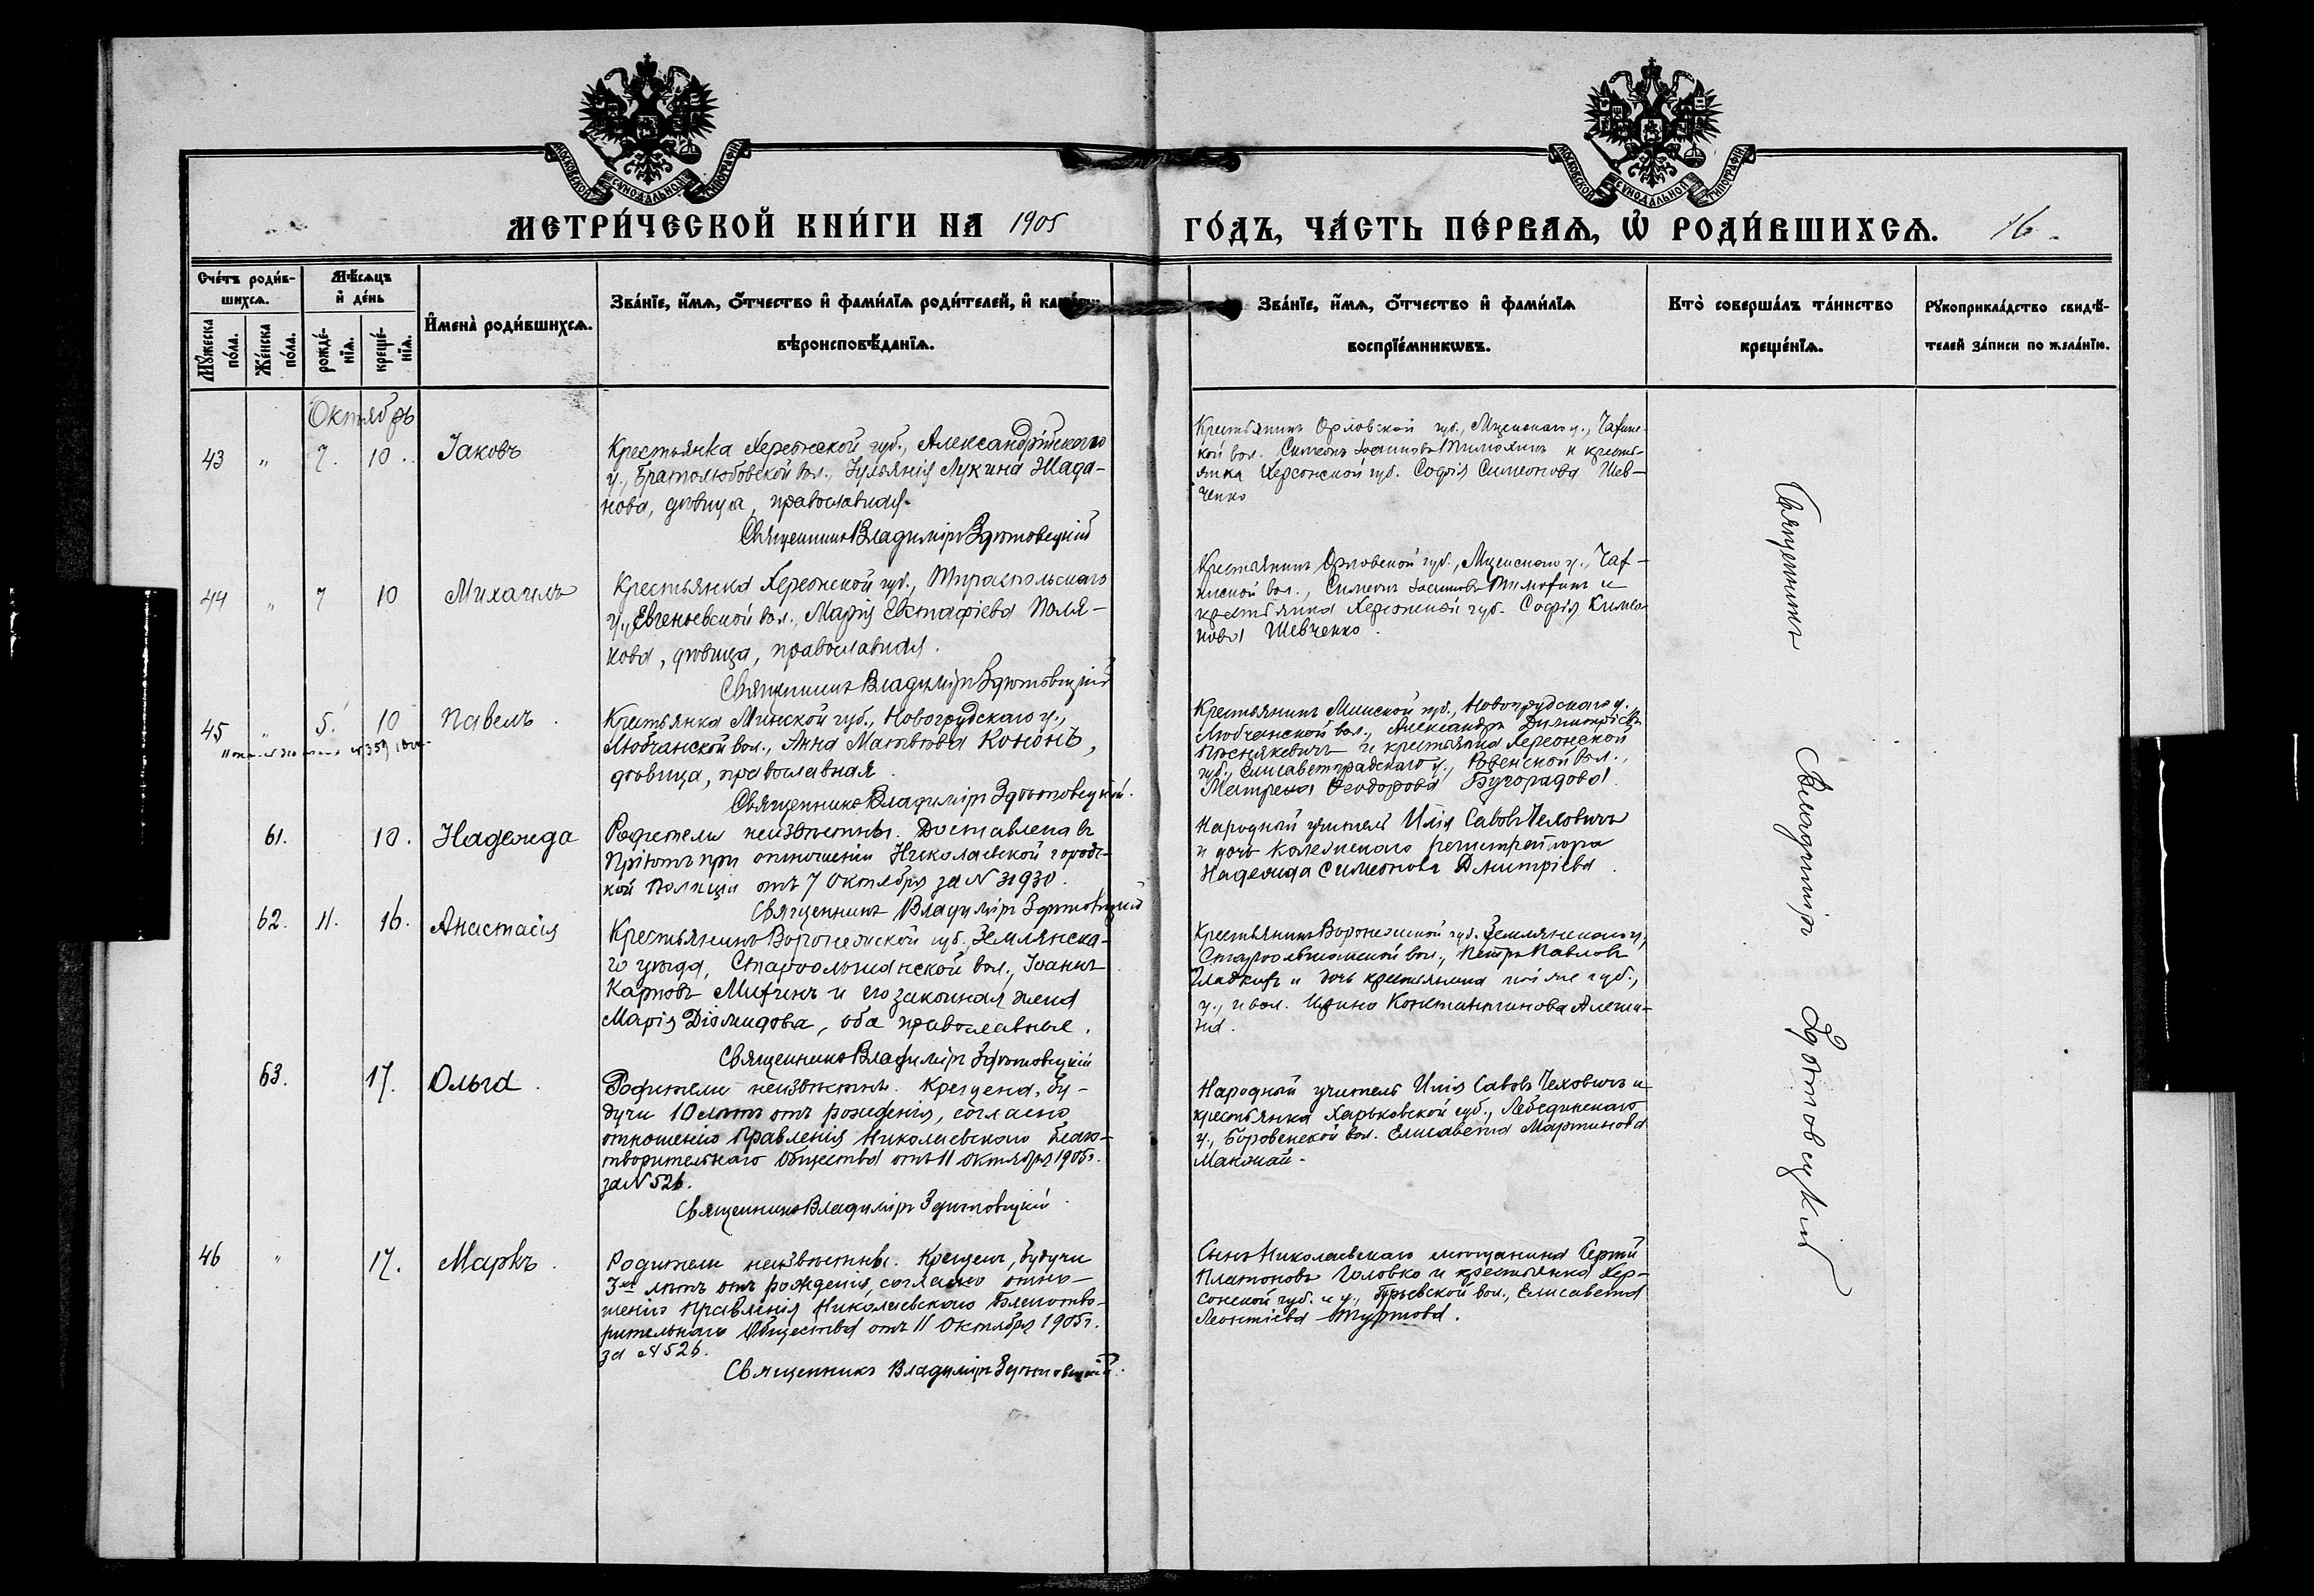 МОСКОВСКОЙ СУНОДАЛЬНОЙ ТИПОГРАФІИ
МОСКОВСКОЙ СУНОДАЛЬНОЙ ТИПОГРАФІИ
МЕТРИ́ЧЕСКОЙ КНИ́ГИ НА 1905 ГО́ДЪ, ЧА́СТЬ ПЕ́РВАѦ, Ѡ РОДИ́ВШИХСѦ. 16.
Сче́тъ роди́в-
шихсѧ.
Мѣ́сѧцъ
и҆ де́нь
Мꙋ́жеска
по́ла.
Же́нска
по́ла.
рожде́-
нїѧ.
креще́-
нїѧ.
И҆мена̀ роди́вшихсѧ.
Зва́нїе, и҆́мѧ, ѻ҆́тчество и҆ фами́лїѧ роди́телей, и҆
вѣроисповѣ́данїѧ.
Зва́нїе, и҆́мѧ, ѻ҆́тчество и҆ фами́лїѧ
воспрїе́мникѡвъ.
Кто̀ соверша́лъ та́инство
креще́нїѧ.
Рꙋкоприкла́дство свидѣ́-
телей за́писи по жела́нїю.
Октябрь
43 " 7. 10. Іаковъ
Крестьянка Херсонской губ., Александрійскаго
у., Братолюбовской вол., Іуліанія Лукина Жада-
нова, дѣвица, православная.
Священникъ Владиміръ Здетовецкій
Крестьянинъ Орловской губ., Мценскаго у.,
кой вол. Симеонъ и кресть-
янка Херсонской губ. Софія Симеонова Шев-
ченко
44 " 7 10 Михаилъ
Крестьянка Херсонской губ., Тираспольскаго
у., Евгеньевской вол., Марія Евстафіева Поля-
кова, дѣвица, православная.
Священникъ Владиміръ Здетовецкій
Крестьянинъ Орловской губ., Мценскаго у.,
вол., Симеонъ и
крестьянка Херсонской губ. Софія
нова Шевченко.
45 " 5. 10 Павелъ.
Крестьянка Минской губ., Новогрудскаго у.,
Любчанской вол., Анна Матвѣева Кононъ,
дѣвица, православная.
Священникъ Владиміръ Здетовецкій.
Крестьянинъ Минской губ., Новогрудскаго у.
Любчанской вол., Александръ Димитріевъ
и крестьянка Херсонской
губ., Елисаветградскаго у., Ровенской вол.,
Матрена Ѳеодорова
61. 10. Надежда
Родители неизвѣстны. Доставлена въ
Пріютъ при отношеніи Николаевской городс-
кой Полиціи отъ 7 Октября за № 31930.
Священникъ Владиміръ Здетовецкій
Народный учитель Илія Савовъ Чеховичъ
и дочь коллежскаго регистратора
Надежда Симеонова Димитріева.
62. 11. 16. Анастасія
Крестьянинъ Воронежской губ., Землянска-
го уѣзда, Староольшанской вол., Іоаннъ
Карповъ Митинъ и его законная жена
Марія Діомидова, оба православные.
Священникъ Владиміръ Здетовецкій
Крестьянинъ Воронежской губ. Землянскаго у,
Староольшанской вол., Петръ Павловъ
Гладкихъ и дочь крестьянина той же губ.,
у., и вол. Ирина Константинова Алеши-
на.
63. 17. Ольга.
Родители неизвѣстны. Крещена, бу-
дучи 10 лѣтъ отъ рожденія, согласно
отношенію Правленія Николаевскаго Благо-
творительнаго Общества отъ 11 Октября 1905г.
за № 526.
Священникъ Владиміръ Здетовецкій
Народный учитель Илія Савовъ Чеховичъ и
крестьянка Харьковской губ., Лебединскаго
у., Боровенской вол. Елисавета Мартинова
46 " 17. Маркъ.
Родители неизвѣстны. Крещенъ, будучи
3хъ лѣтъ отъ рожденія, согласно отно-
шенію Правленія Николаевскаго Благотво-
рительнаго Общества отъ 11 Октября 1905г.
за № 526.
Священникъ Владиміръ Здетовецкій.
Сынъ Николаевскаго мѣщанина Сергій
Платоновъ Головко и крестьянка Хер-
сонской губ. и у., вол., Елисавета
Леонтіева
Священникъ Владиміръ Здетовецкій